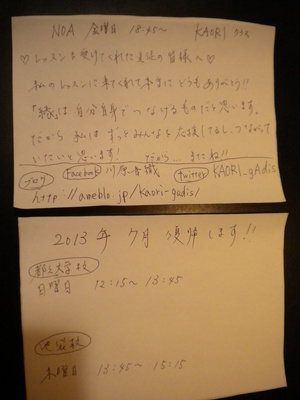 NOA 金曜日 18:45〜 KAORI クラス
♡レッスンを受けてくれた生徒の皆様へ♡
私のレッスンに来てくれて本当にどうもありがとう!!
「縁」は自分自身でつなげるものだと思います。
だから私はずっとみんなを応援してるし、つながって
いたいと思います! だから...またね!!
ブログ Facebook 川原香織 twitter KAORI_gAdis
http://ameblo.jp/kaori-gadis/
2013年7月復帰します!!
都立大学校
日曜日 12:15〜13:45
池袋校
木曜日 13:45〜15:15